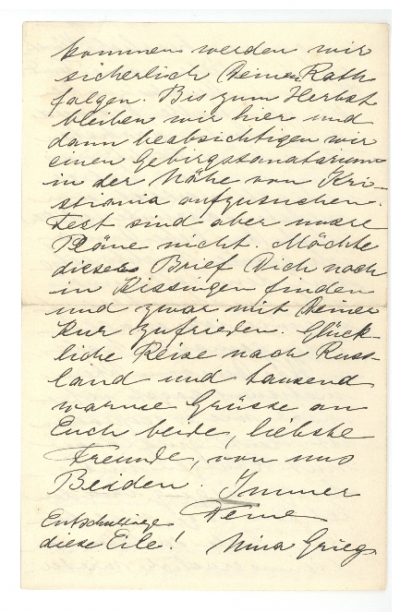 kommen werden wir
sicherlich Deinen Rath
folgen. Bis zum Herbst
bleiben wir hier und
dann beabsichtigen wir
einen Gebirgssanatorium
in der Nähe von Kri-
stiania aufzusuchen.
Fest sind aber unsere
Pläne nicht. Möchte
dieser Brief Dich noch
in Kissingen finden
und zwar mit Deiner
Kur zufrieden. Glück-
liche Reise nach Russ-
land und tausend
warme Grüsse an
Euch beide, liebste
Freunde, von uns
Beiden. Immer
Deine
Nina Grieg
Entschuldige
diese Eile!